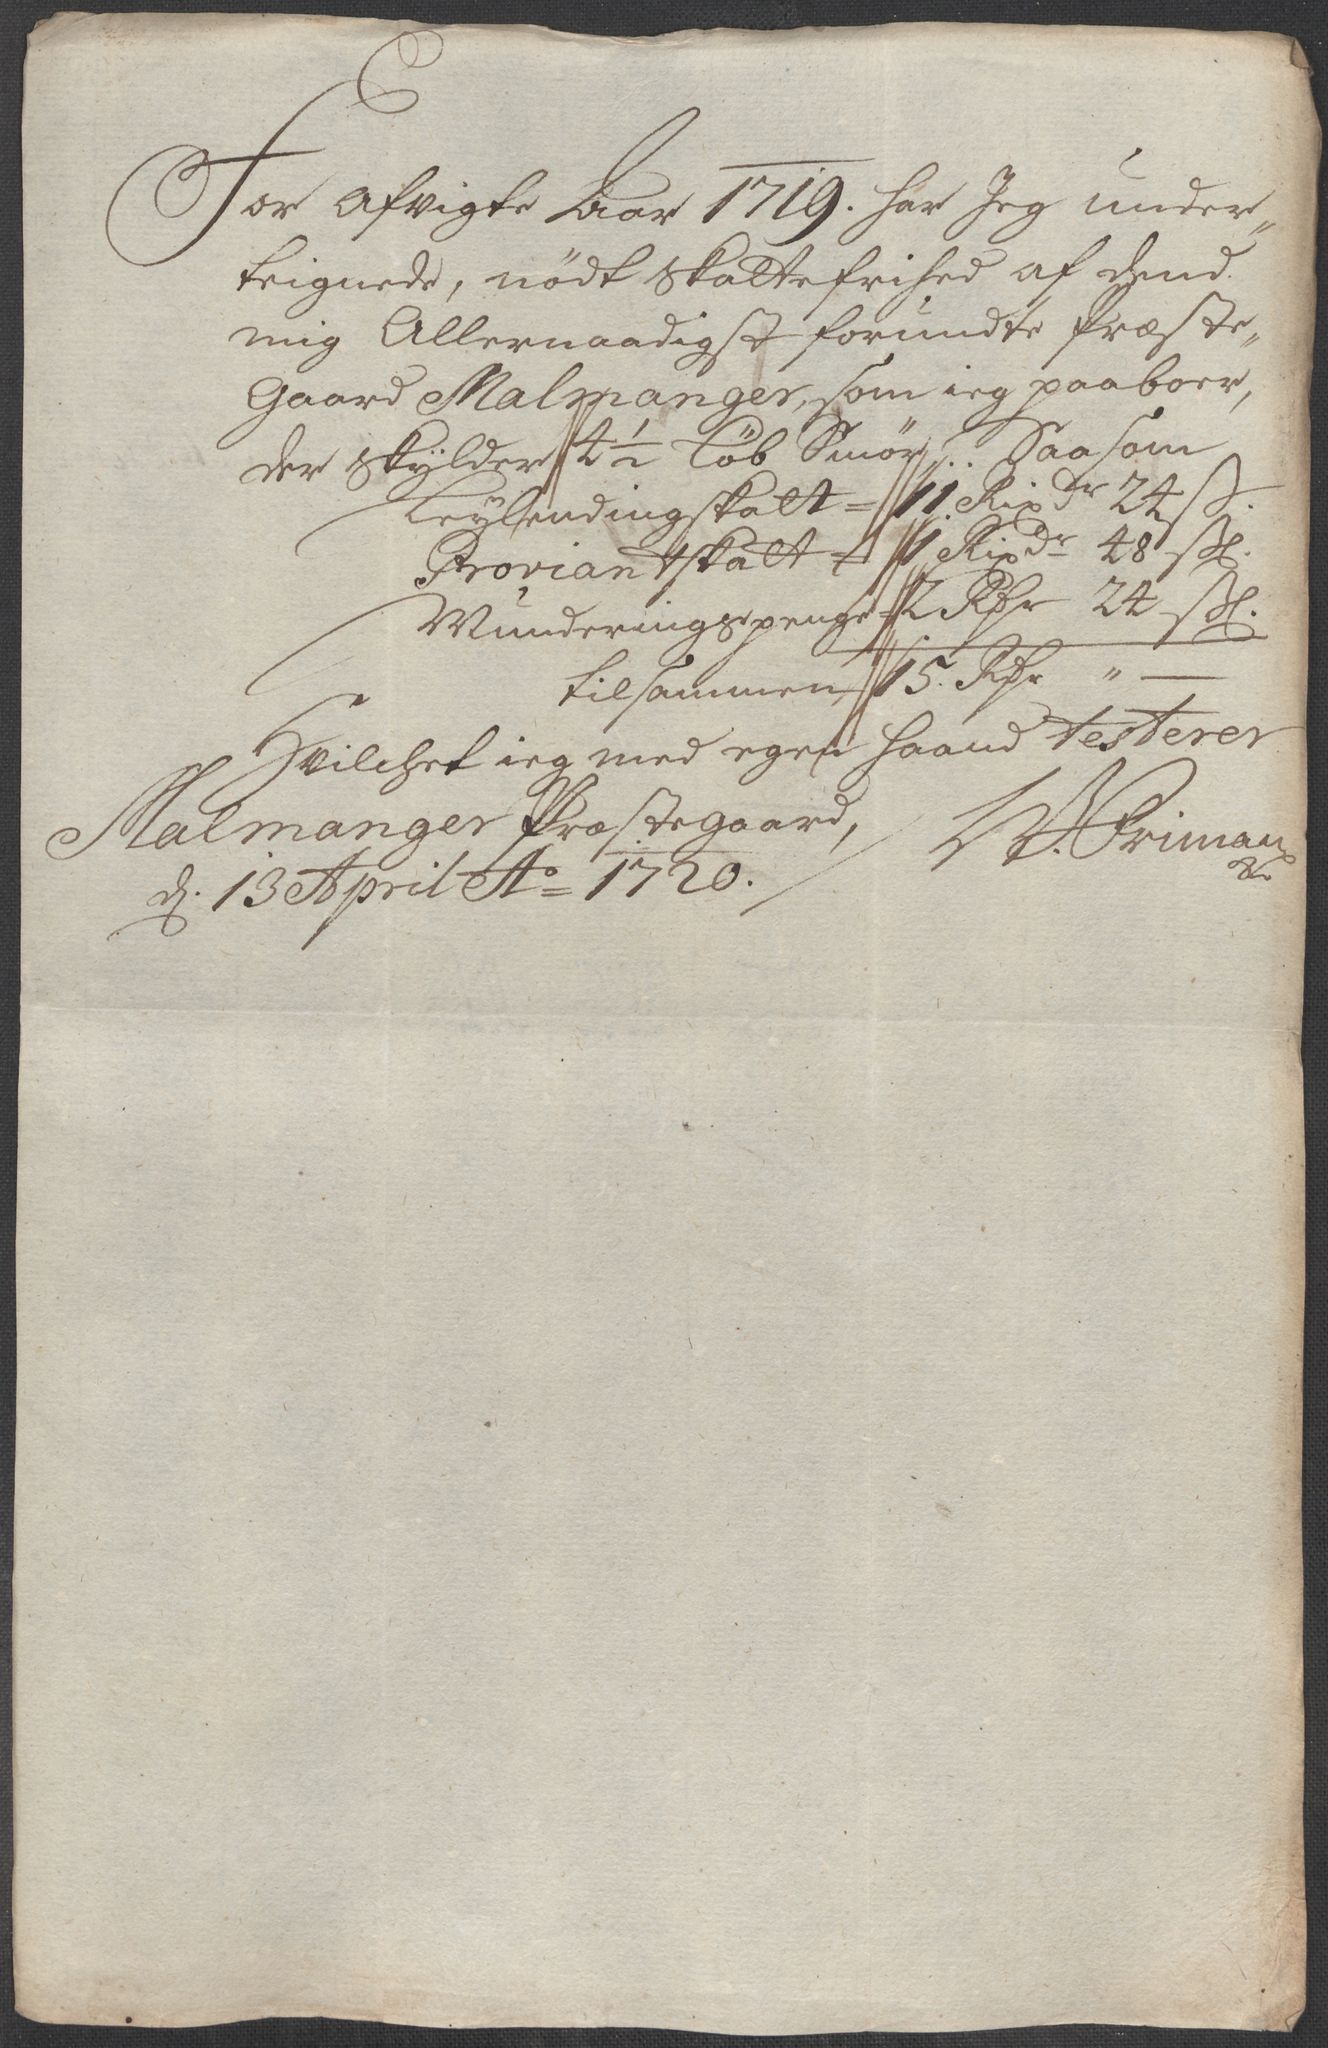 For Afvigte Aar 1719. har Jeg under-
teignede, nödt skattefrihed af dend
mig Allernaadigst forundte Præste-
Gaard Malmanger, som ieg paaboer,
der skylder 4½ Löb Smör, .. Saasom
Leÿlendingskatt = 11. Rixdr 24 ß.
Proviantskatt = 1 Rixdr 48 ßl.
Munderingspenge = 2 Rdr 24 ßl.
tilsammen 15. Rdr " —
Hvilchet ieg med egen haand testerer
Malmanger Præstegaard,
d. 13 April Ao = 1720.
Friman